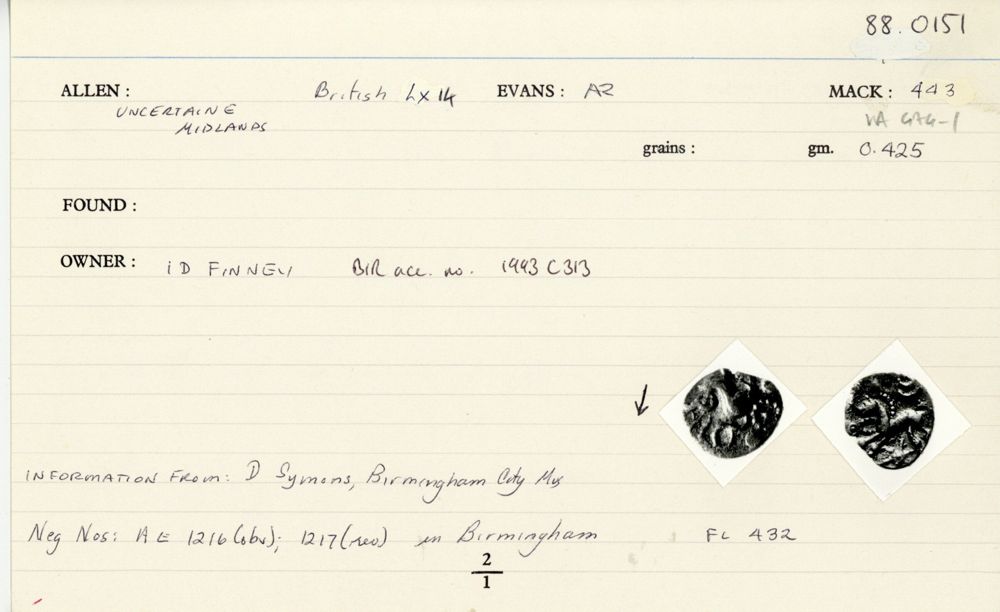 88.0151
ALLEN : British LX 14 EVANS : AR MACK : 443
UNCERTAINE
MIDLANDS
VA GAG-1
grains : gm. 0.425
FOUND :
OWNER : ID FINNEY BIR acc. no. 1993 C313
INFORMATION FROM: D Symons, Birmingham City Mus
Neg Nos: AE 1216(obv); 1217(rev) in Birmingham FL 432
2
1